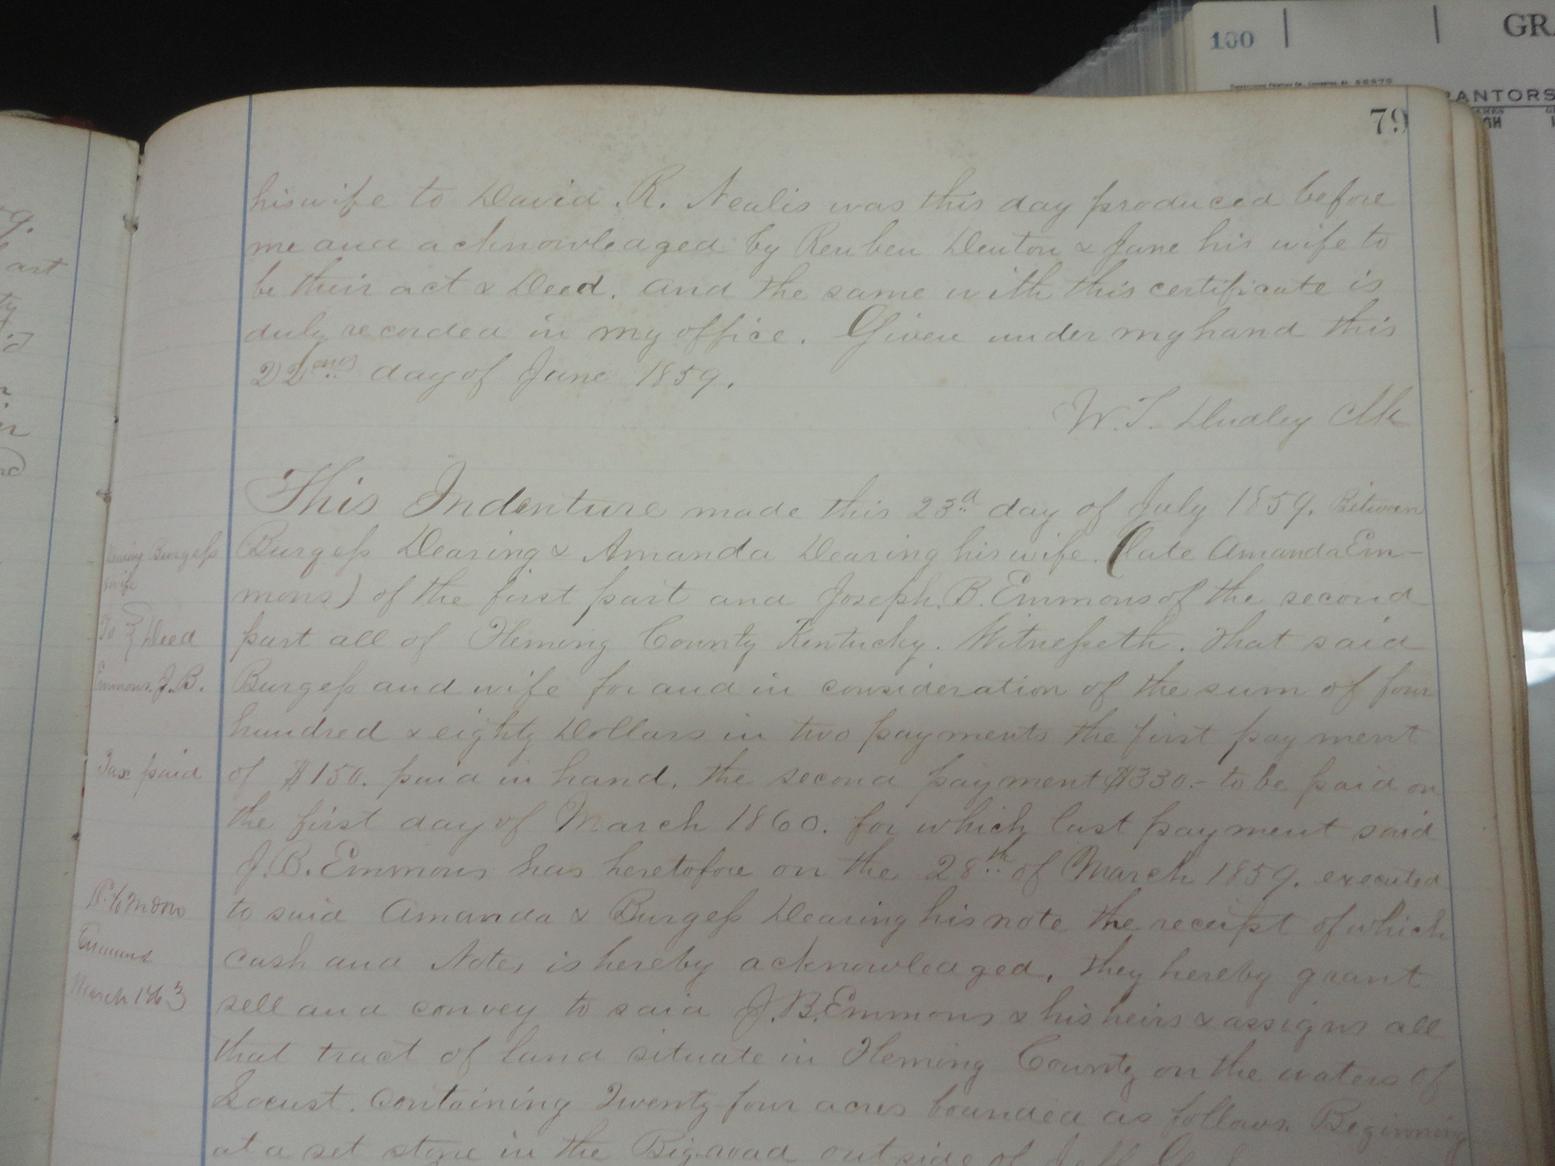 100
GR
RANTORS
79
his wife to David. R. Nealis was this day produced before
me and acknowledged by Reuben Denton & Jane his wife to
be their act & Deed. and the same with this certificate is
duly recorded in my office. Given under my hand this
22 day of June 1859.
W. T. Dudley Clk
This Indenture made this 23d day of July 1859. Between
Burgess Dearing & Amanda Dearing his wife. (late Amanda Em-
mons) of the first part and Joseph. B. Emmons of the second
part all of Fleming County Kentucky. Witnesseth. That said
Burgess and wife for and in consideration of the sum of four
hundred & eighty Dollars in two payments the first payment
of $150. paid in hand. the second payment $330.- to be paid on
the first day of March 1860. for which last payment said
J. B. Emmons has heretofore on the 28th of March 1859. executed
to said Amanda & Burgess Dearing his note the receipt of which
cash and Notes is hereby acknowledged. they hereby grant
sell and convey to said J. B. Emmons & his heirs & assigns all
that tract of land situate in Fleming County on the waters of
Locust. Containing Twenty four acres bounded as follows. Beginning
at a set stone in the Big road outside of
Dearing Burgess
wife
To } Deed
Emmons. J. B.
Tax paid
Emmons
March